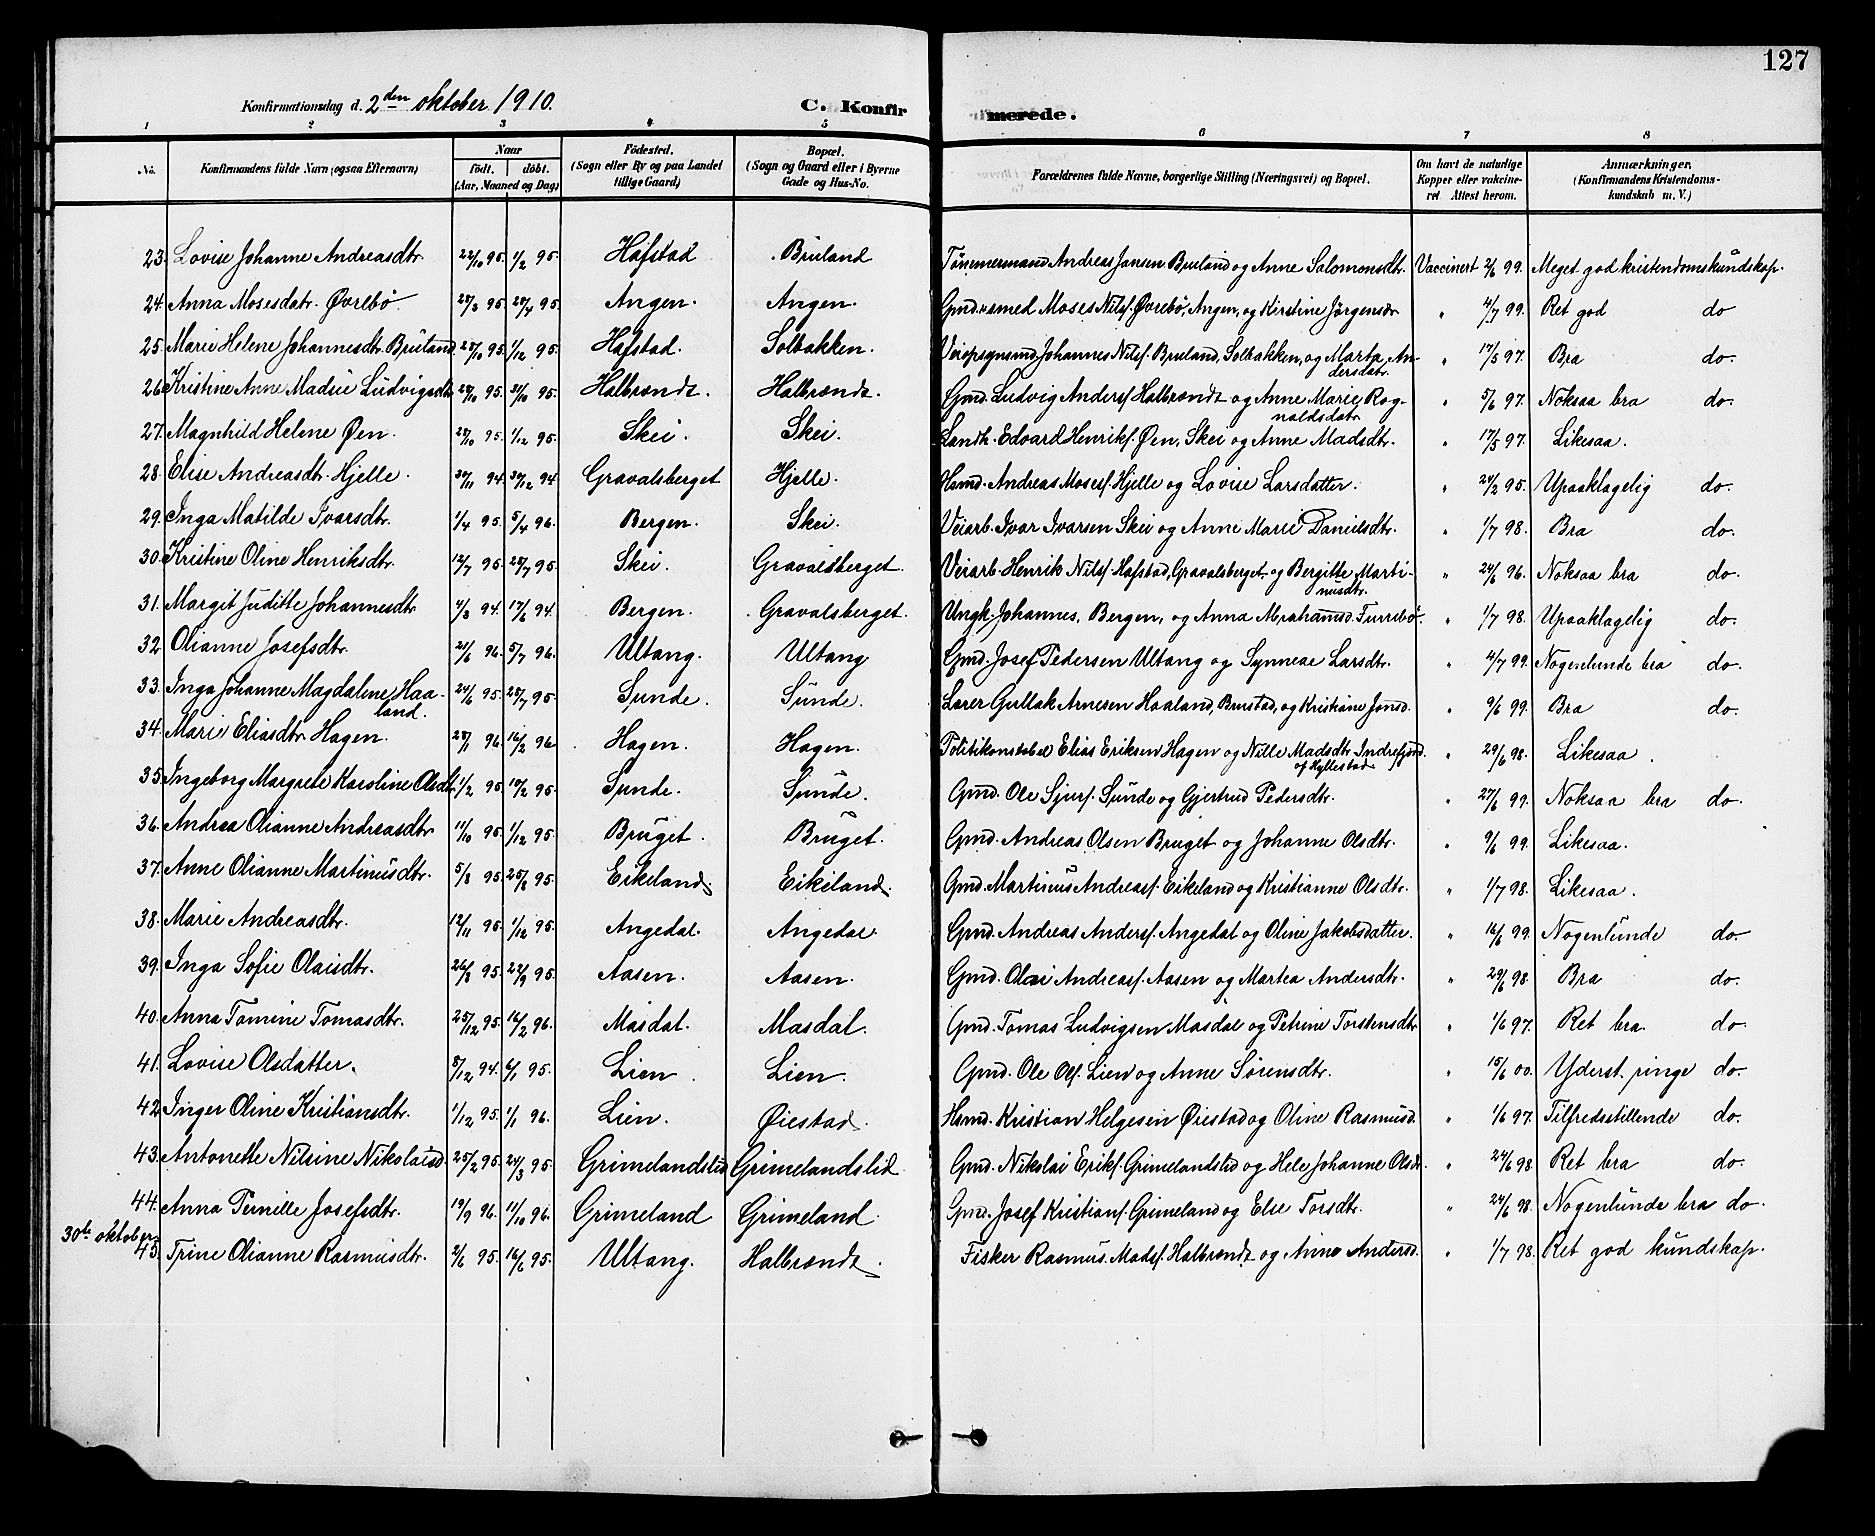 127
Konfirmationsdag d. 2den oktober 1910. C. Konfirmerede.
1 2 3 4 5 6 7 8
No. Konfirmandens fulde Navn (ogsaa Efternavn) Naar født. døbt. (Aar, Maaned og Dag) Fødested. (Sogn eller By og paa Landet tillige Gaard) Bopæl. (Sogn og Gaard eller i Byerne Gade og Hus-No. Forældrenes fulde Navne, borgerlige Stilling (Næringsvei) og Bopæl. Om havt de naturlige Kopper eller vakcineret Attest herom. Anmærkninger, (Konfirmandens Kristendomskundskab m. V.)
23. Lovise Johanne Andreasdtr. 22/10 95. 1/2 95. Hafstad Bruland Tömmermand Andreas Jansen Bruland og Anne Salomonsdtr. Vaccinert 2/6 99. Meget god kristendomskundskap.
24. Anna Mosesdatr. Øvrebø 28/3 95 28/4 95. Angen. Angen. Gmd. smed Moses Nilsf. Øvrebö, Angen, og Kirstine Jörgensdr " 4/7 99. Ret god do
25. Marie Helene Johannesdtr. Bruland 28/10 95. 1/12 95. Hafstad. Solbakken. Veiopsynsmd Johannes Nilsf. Bruland, Solbakken, og Marta Andersdatr. " 17/5 97. Bra do.
26. Kristine Anne Madsie Ludvigsdtr 28/10 95. 31/10 95. Halbrendt. Halbrendt. Gmd. Ludvig Andersf. Halbrendt og Anne Marie Rognaldsdatr " 5/6 97. Noksaa bra do.
27. Magnhild Helene Øen. 28/10 95. 1/12 95. Skei. Skei. Landh. Edvard Henriksf. Øen, Skei og Anne Madsdtr. " 17/5 97. Likesaa.
28. Elise Andreasdtr. Hjelle. 30/11 94. 30/12 94 Gravalsberget Hjelle. Hsmd. Andreas Mosesf. Hjelle og Lovise Larsdatter. " 24/2 95. Upaaklagelig do.
29. Inga Matilde Ivarsdtr. 1/4 95. 5/4 96. Bergen. Skei. Veiarb. Ivar Ivarsen Skei og Anne Marie Danielsdtr. " 1/7 98. Bra do.
30. Kristine Oline Henriksdtr. 12/7 95. 28/7 95. Skei. Gravalsberget. Veiarb. Henrik Nilsf. Hafstad, Gravalsberget og Bergitte Martinusdtr. " 24/6 96. Noksaa bra do.
31. Margit Juditte Johannesdtr 4/3 94. 17/6 94. Bergen. Gravalsberget. Ungk. Johannes, Bergen, og Anna Abrahamsd. Furrebø. " 1/7 98. Upaaklagelig do.
32. Olianne Josefsdtr. 21/6 96. 5/7 96. Ultang. Ultang Gmd. Josef Pedersen Ultang og Synneae Larsdtr. " 4/7 99. Nogenlunde bra do.
33. Inga Johanne Magdalene Haaland. 24/6 95. 28/7 95. Sunde. Sunde. Lærer Gullak Arnesen Haaland, Brustad, og Kristiane Jonsd. " 9/6 99. Bra do.
34. Marie Eliasdtr. Hagen. 28/1 96. 16/2 96 Hagen. Hagen. Politikonstabel Elias Eriksen Hagen og Nille Madsdtr. Indrefjord. af Hyllestad " 29/6 98. Likesaa.
35. Ingeborg Margrete Karoline Olsdtr. 1/2 95. 10/2 95. Sunde. Sunde. Gmd. Ole Sjurf. Sunde og Gjertrud Pedersdtr. " 27/6 99. Noksaa bra do.
36. Andrea Olianne Andreasdtr 11/10 95. 1/12 95. Bruget. Bruget. Gmd. Andreas Olsen Bruget og Johanne Olsdtr. " 9/6 99. Likesaa.
37. Anne Olianne Martinusdtr. 5/8 95. 25/8 95. Eikeland. Eikeland. Gmd. Martinus Andreasf. Eikeland og Kristianne Olsdtr. " 1/7 98. Likesaa.
38. Marie Andreasdtr. 12/11 95. 1/12 95. Angedal. Angedal. Gmd. Andreas Andersf. Angedal og Oline Jakobsdatter. " 16/6 99. Nogenlunde do.
39. Inga Sofie Olaisdtr. 26/8 95. 22/9 95. Aasen. Aasen. Gmd. Olai Andreasf. Aasen og Martea Andersdtr. " 29/6 98. Bra do.
40. Anna Tomine Tomasdtr. 25/12 95. 16/2 96. Masdal. Masdal. Gmd. Tomas Ludvigsen Masdal og Petrine Torstensdtr " 1/6 97. Ret bra do.
41. Lovise Olsdatter. 8/12 94. 6/1 95. Lien. Lien. Gmd. Ole Olsf. Lien og Anne Sørensdtr. " 15/6 00. Yderst ringe do.
42. Inger Oline Kristiansdtr. 1/12 95. 1/1 96. Lien. Øiestad. Hsmd. Kristian Helgesen Øiestad og Oline Rasmusd. " 1/6 97. Tilfredsstillende do.
43. Antonette Nilsine Nikolaisd. 25/2 95. 24/3 95. Grimelandslid Grimelandslid Gmd. Nikolai Eriksf. Grimelandslid og Hele Johanne Olsdr. " 24/6 98. Ret bra do.
44. Anna Pernille Josefsdtr. 19/9 96. 11/10 96. Grimeland Grimeland. Gmd. Josef Kristianf. Grimeland og Else Torsdtr. " 24/6 98. Nogenlunde bra do.
30te oktober.
45. Trine Olianne Rasmusdtr. 2/6 95. 16/6 95. Ultang. Halbrendt. Fisker Rasmus Madsf. Halbrendt og Anne Andersd. " 1/7 98. Ret god kundskap.